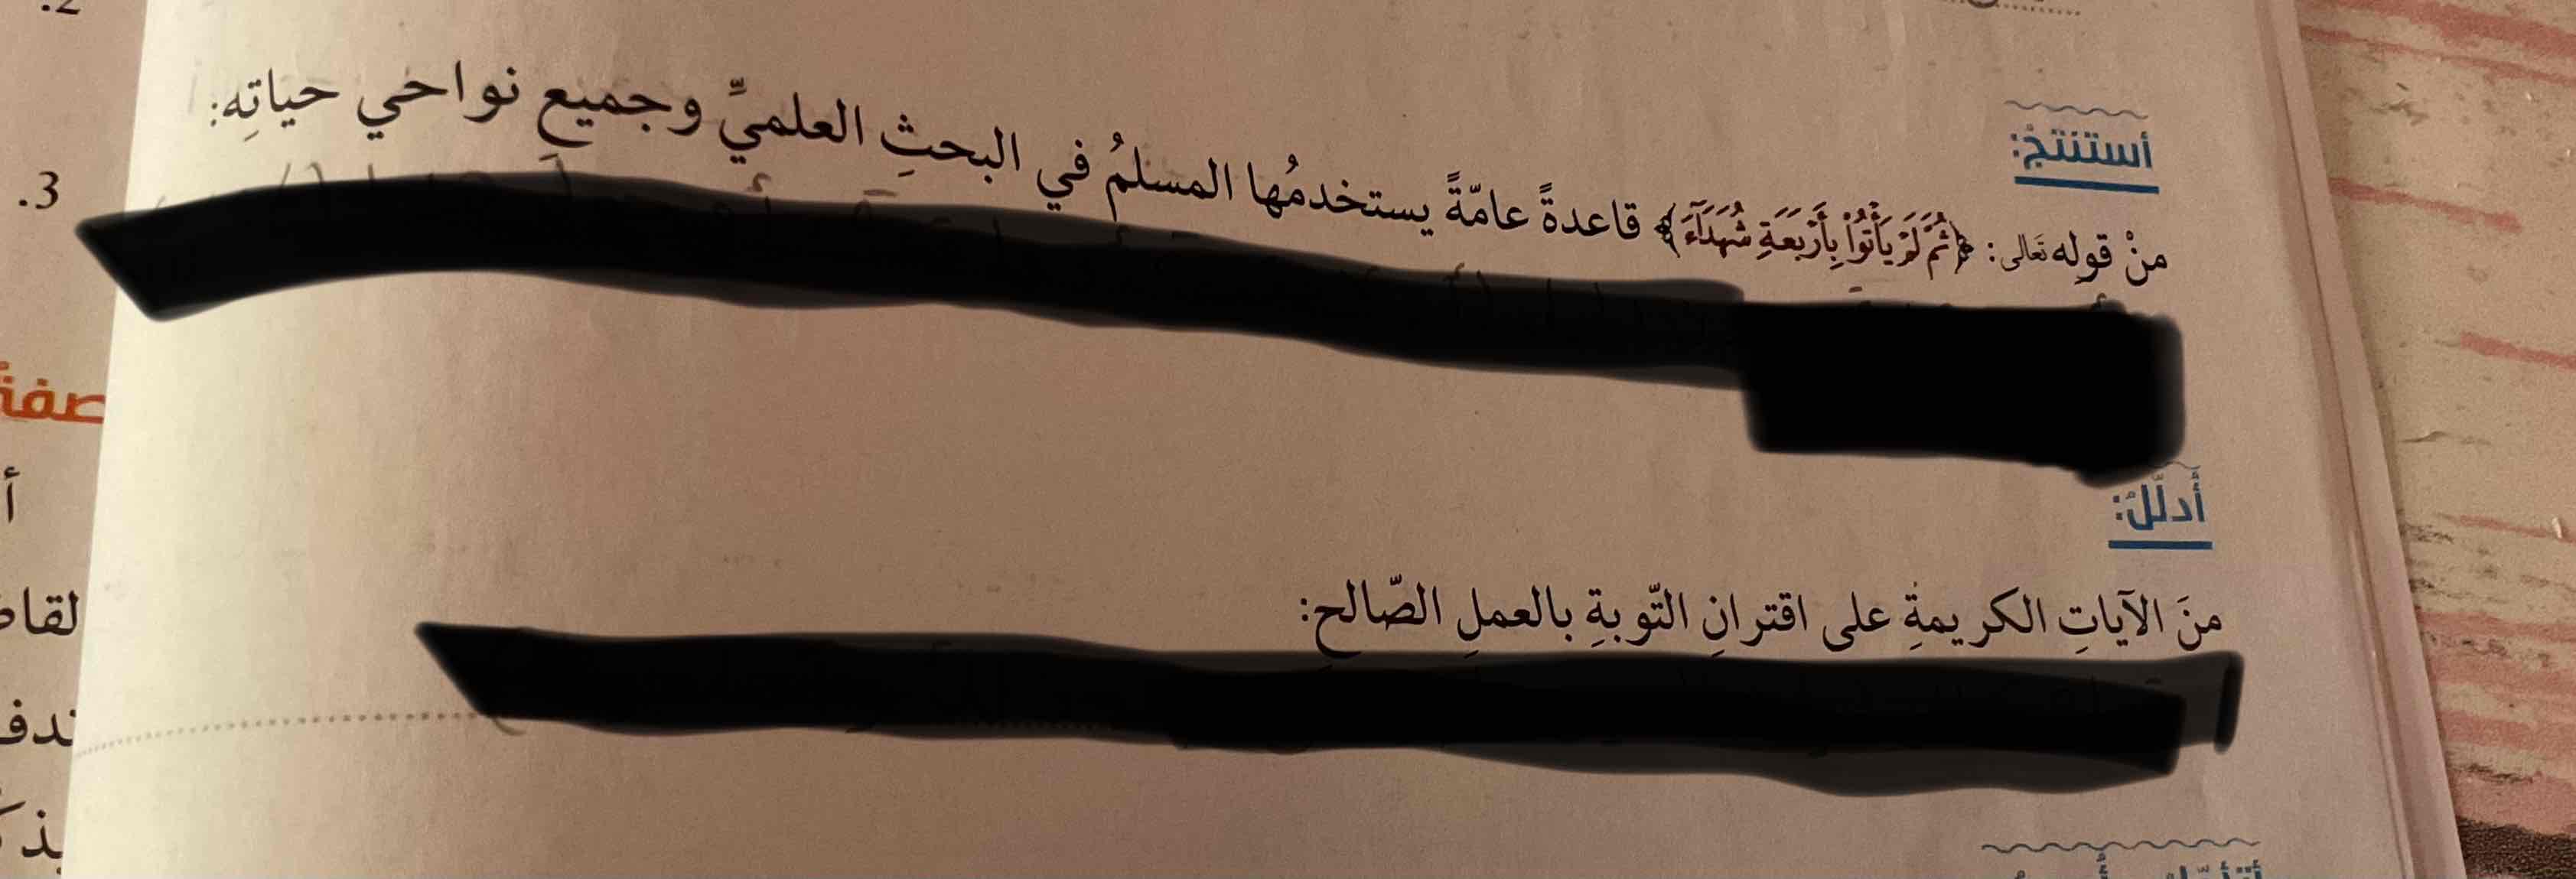 .2
أستنتجُ:
منْ قوله تَعَالى: ﴿ثُمَّ لَمْ يَأْتُوا۟ بِأَرْبَعَةِ شُهَدَآءَ﴾ قاعدةً عامّةً يستخدمُها المسلمُ في البحثِ العلميِّ وجميعِ نواحي حياتِه:
.3
أدلّلُ:
منَ الآياتِ الكريمةِ على اقترانِ التّوبةِ بالعملِ الصّالحِ: